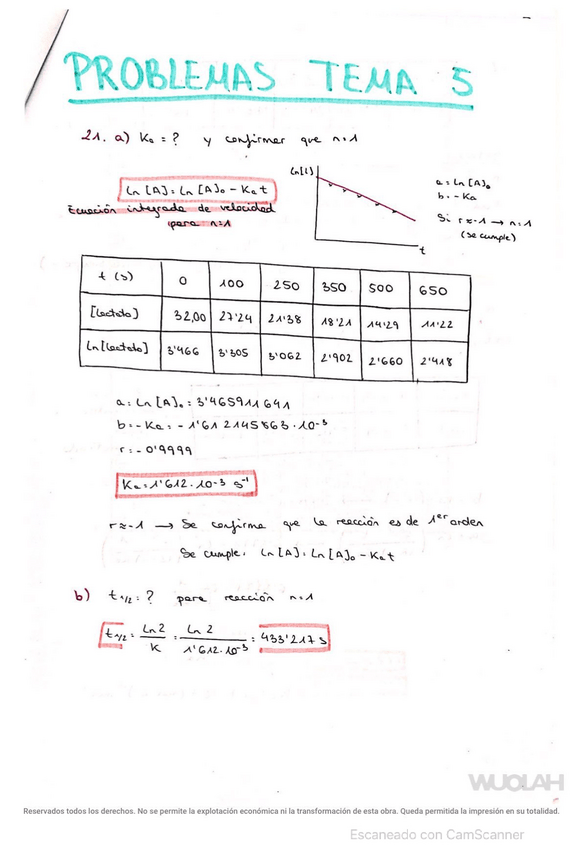 PROBLEMAS TEMA 5
21. a) Ka = ? y confirmar que n=1
Ln [A] = Ln [A]o - Ka t
Ecuación integrada de velocidad
para n=1
Ln[L]
t
a = Ln [A]o
b = - Ka
Si r ≈ -1 → n=1
(se cumple)
t (s) 0 100 250 350 500 650
[Lactato] 32,00 27'24 21'38 18'21 14'29 11'22
Ln [Lactato] 3'466 3'305 3'062 2'902 2'660 2'418
a = Ln [A]o = 3'465911641
b = - Ka = - 1'612145863 · 10-3
r = - 0'9999
Ka = 1'612 · 10-3 s-1
r ≈ -1 → Se confirma que la reacción es de 1er orden
Se cumple: Ln [A] = Ln [A]o - Ka t
b) t1/2 = ? para reacción n=1
t1/2 = Ln 2 / K = Ln 2 / 1'612 · 10-3 = 433'217 s
WUOLAH
Reservados todos los derechos. No se permite la explotación económica ni la transformación de esta obra. Queda permitida la impresión en su totalidad.
Escaneado con CamScanner